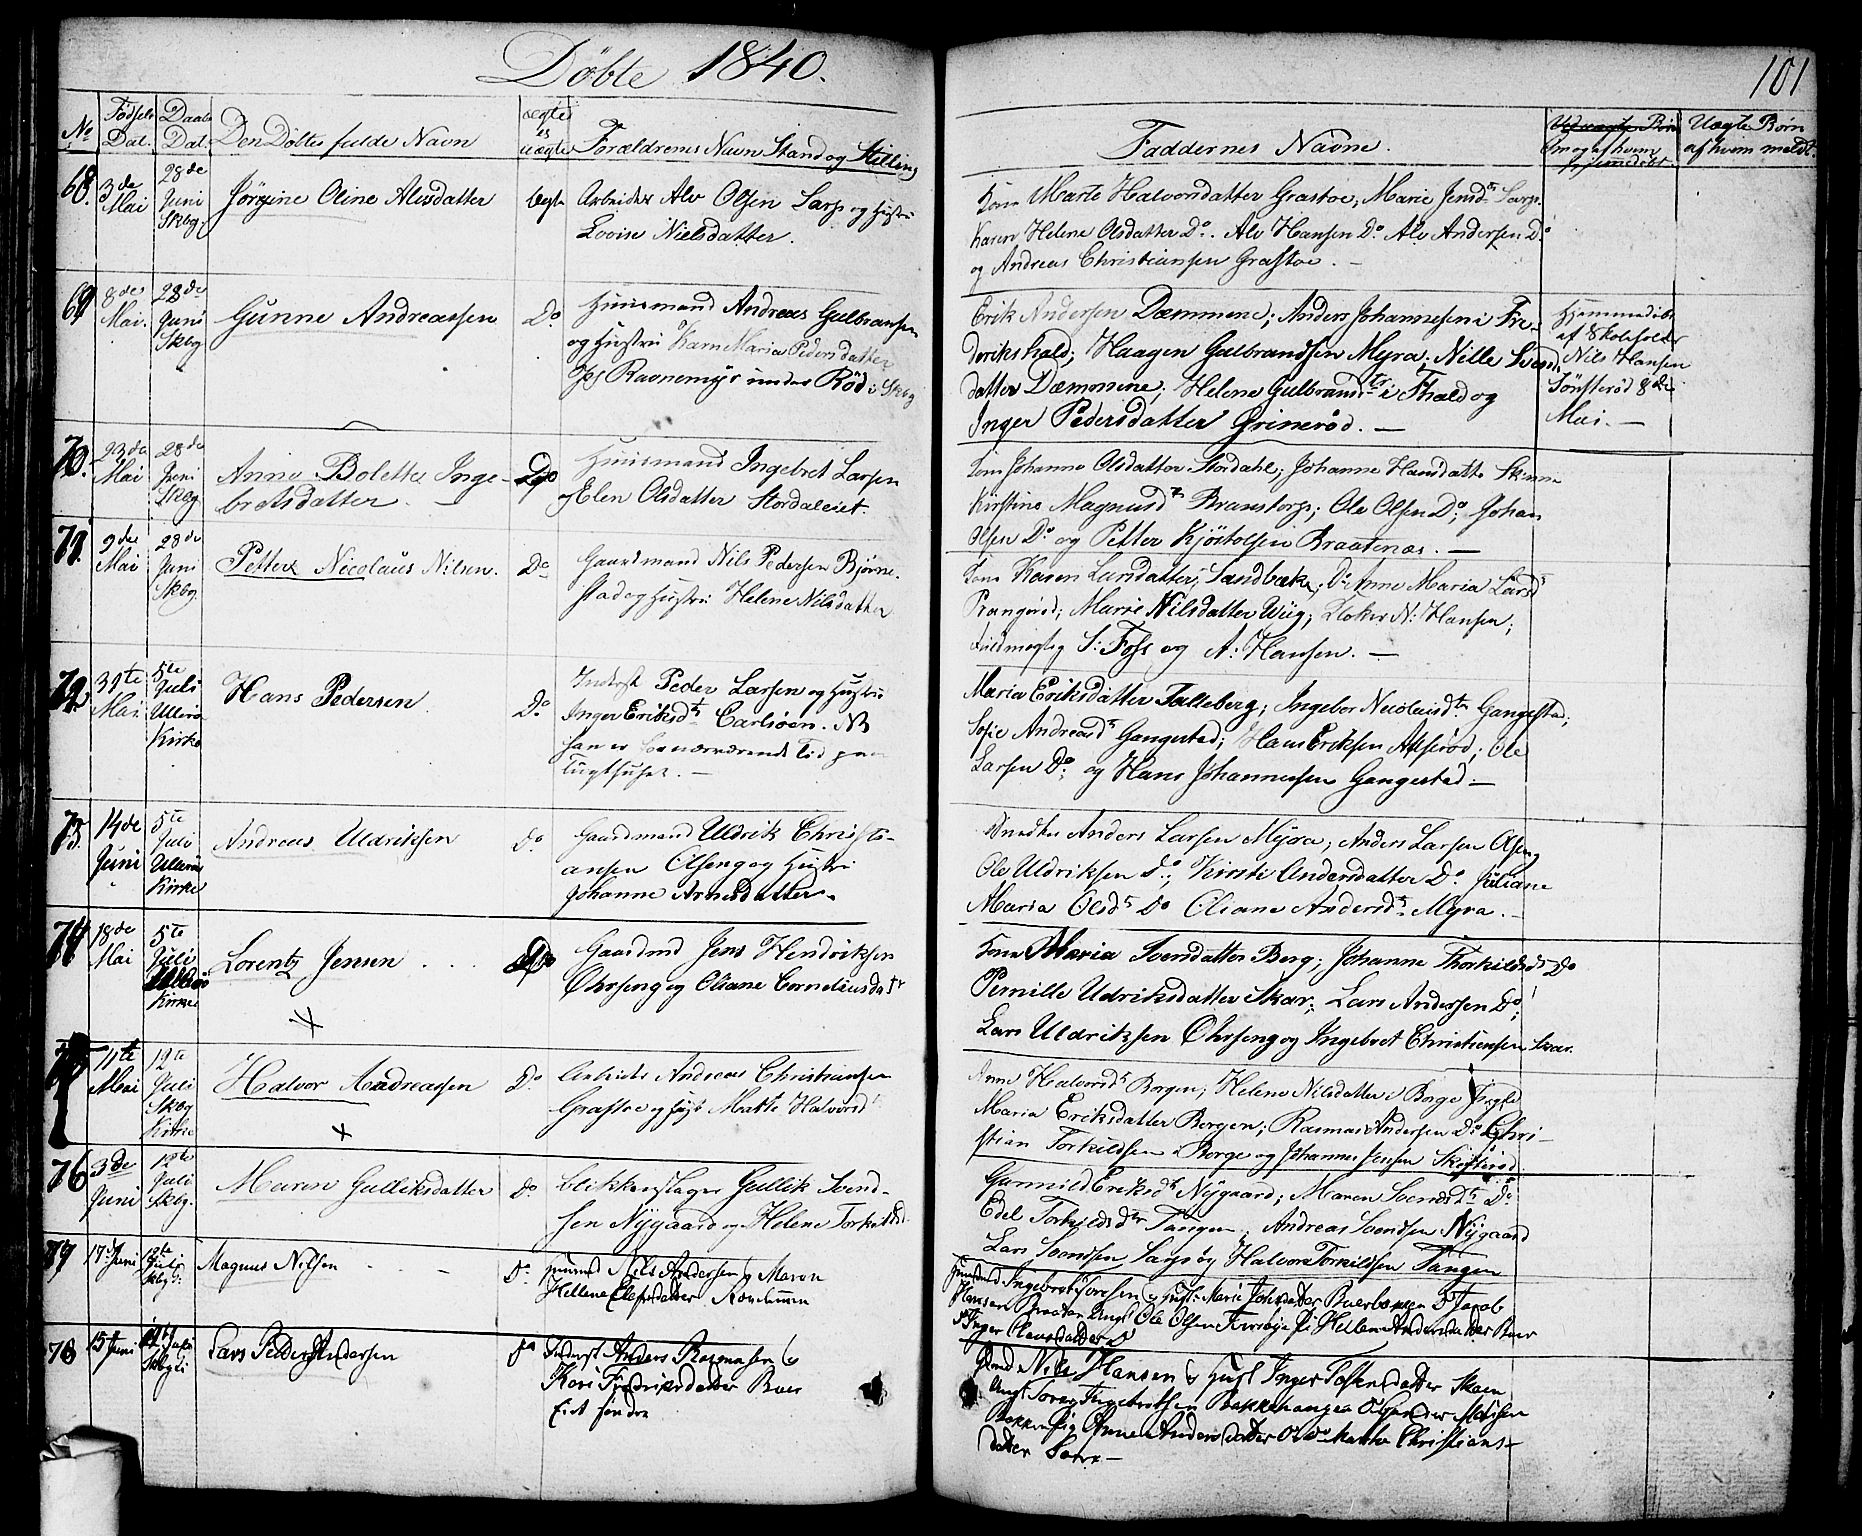 Döbte 1840.
101
No
Födsels Dat.
Daabs Dat.
Den Döbtes fulde Navn
ægte el uægte
Forældrenes Navn Stand og Stilling
Faddernes Navne.
Uægte Børn af hvem meldt.
68.
3de Mai
28de Juni Skbg
Jörgine Oline Alvsdatter
Ægte
Arbeider Alv Olsen Sarp og Hustru
Lovise Nielsdatter.
Kone Marte Halvorsdatter Grastoe, Marie Jensdtr Sarp.
Karen Helene Olsdatter Do. Alv Hansen Do Alv Andersen Do
og Andreas Christiansen Grastoe. —
69
8de Mai.
28de Juni Skbg
Gunne Andreassen
Do.
Huusmand Andreas Gulbransen
og Hustru Karn Maria Pedersdatter
Ravnemyr under Röd i Skbg
Erik Andersen Dæmmene; Anders Johannesen i Fre-
derikshald; Haagen Gulbrandsen Myra. Nille Svends
datter Dæmmene; Helene Gulbransdtr i Fhald og
Inger Pedersdatter Grinerød. —
Hjemmedöbt
af Skoleholder
Nils Hansen
Sönsteröd 8de
Mai. —
70.
23de Mai
28de Juni Skbg
Anne Bolette Inge-
bretsdatter. —
Do
Huusmand Ingebret Larsen
Elen Olsdatter Stordaleiet.
Kone Johanne Olsdatter Stordahl; Johanne Hansdatter
Kirstine Magnusdtr Branstorp; Ole Olsen Do; Johan
Olsen Do og Petter Kjöstolsen Braatenæs. —
71.
9de Mai
28de Juni Skbg
Petter Nicolaus Nilsen.
Do
Gaardmand Nils Pedersen Björne-
stad og Hustru Helene Nilsdatter
Kone Karen Larsdatter, Sandbæk; Do Anne Maria Larsd
Prangeröd; Marie Nilsdatter Wiig; Kloker N: Hansen;
Fuldmægtig S: Foss og A: Hansen. —
72.
31te Mai.
5te Juli Ullerö Kirke
Hans Pedersen
Do
Inderst Peder Larsen og Hustru
Inger Eriksdtr Carlsöen. NB
han er for nærværende tid paa
Tugthuset. —
Maria Eriksdatter Talleberg; Ingebor Nicolaisdtr Gangestad;
Sofie Andreasdtr Gangestad; Hans Eriksen; Ole
Larsen Do; og Hans Johannessen Gangestad. —
73.
14de Juni
5te Juli Ullerö Kirke
Andreas Uldriksen
do
Gaardmand Uldrik Christi-
ansen Olseng og Hustru
Johanne Arnesdatter.
Anders Larsen Myra; Anders Larsen Olseng
Ole Uldriksen do; Kirsti Andersdatter Do. Juliane
Maria Olsdtr Do Oliane Andersdtr Myra. —
74
18de Mai
5te Juli Kirke
Lorentz Jensen
Do
Gaardmd Jens Hendriksen
Öhrseng og Oliane Corneliusdatr
Kone Maria Svensdatter Berg; Johanne Thorkildsdtr Do
Pernille Udriksdatter Skar; Lars Andersen Do;
Lars Uldriksen Öhrseng og Ingebret Christiansen Skar.
11te Mai
12te Juli Skbg Kirke
Halvor Andreassen
Do
Arbeider Andreas Christiansen
Grastoe og Hust Marte Halvorsd
Anne Halvorsdtr Borgen; Helene Nilsdatter i Borge
Maria Eriksdatter Borgen; Rasmus Andersen Do Chri-
stian Torkildsen Borge og Johannes Jensen
76
3de Juni
12te Juli Skbg.
Maren Gulliksdatter
Do
blikkenslager Gullik Svend-
sen Nygaard og Helene Torkildsd
Gunnild Eriksdtr Nygaard; Maren Svendsdtr Do
Edel Torkildsdtr Tangen, Andreas Svendsen Nygaard
Lars Svendsen Sarp og Halvor Torkildsen Tangen
77
17de Juni
12te Juli Skbg:
Magnus Nilsen
Do
Nils Andersen og Maren
Hellene
Ingebret Toresen og Hust: Marie Johsdatter
Hansen Ungk Ole Olsen Hellene Andersdatter Buer
Inger Do
78
15 Juni
Lars Peder Andersen
do
Inderst Anders Rasmusen og
Kari Fredriksdatter Buer
Eiet söndre
Nils Hansen og Hust Inger
Ungk Tores Ingebretsen Bakkehaugen
Pig Anne Andersdatter Marthe Christians-
datter —